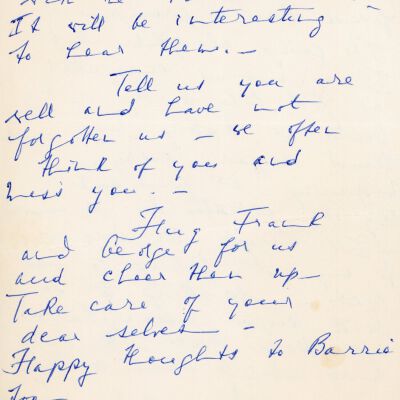 It will be interesting
to hear them. -
Tell us you are
well and have not
forgotten us - we often
think of you and
miss you. -
Hug Frank
and George for us
and cheer them up -
Take care of your
dear selves -
Happy thoughts to Barrie
too -